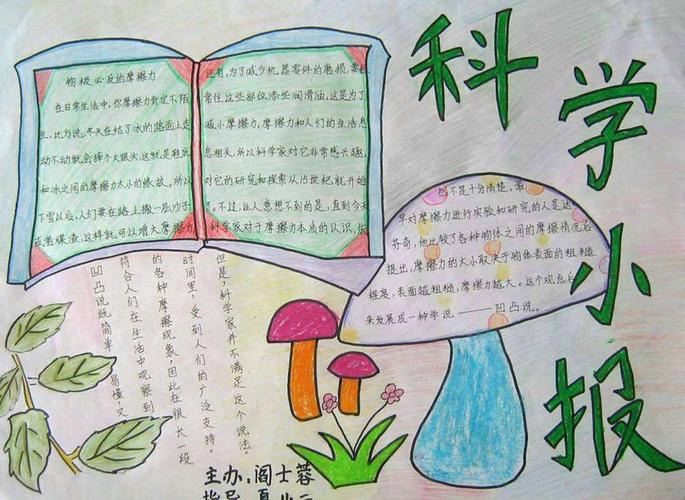 科学小报
物极必反的摩擦力
在日常生活中,你摩擦力肯定不陌
生,比方说,冬天在结了冰的路面上走
动不动就会摔个大跟头.这就是鞋底
和冰之间的摩擦力太小的缘故。所以
下雪以后,人们要在路上撒一层沙子
或者煤渣,这样就可以增大摩擦力
还有,为了减少机器零件的磨损,要经
常往这些部位添些润滑油,这是为了
减小摩擦力。摩擦力和人们的生活息
息相关,所以科学家对它非常感兴趣,
对它的研究和探索从15世纪就开始
了。不过,让人意想不到的是,直到今天
科学家对于摩擦力本质的认识,依
然不是十分清楚。最
早对摩擦力进行实验和研究的人是达
芬奇,他比较了各种物体之间的摩擦情况后
提出,摩擦力的大小取决于物体表面的粗糙
程度,表面越粗糙,摩擦力越大。这个观点后
来发展成一种学说——凹凸说。
凹凸说既简单、易懂,又
符合人们在生活中观察到
的各种摩擦现象,因此在很长一段
时间里,受到人们的广泛支持。
但是,科学家并不满足这个说法。
主办:阎士蓉
指导:夏